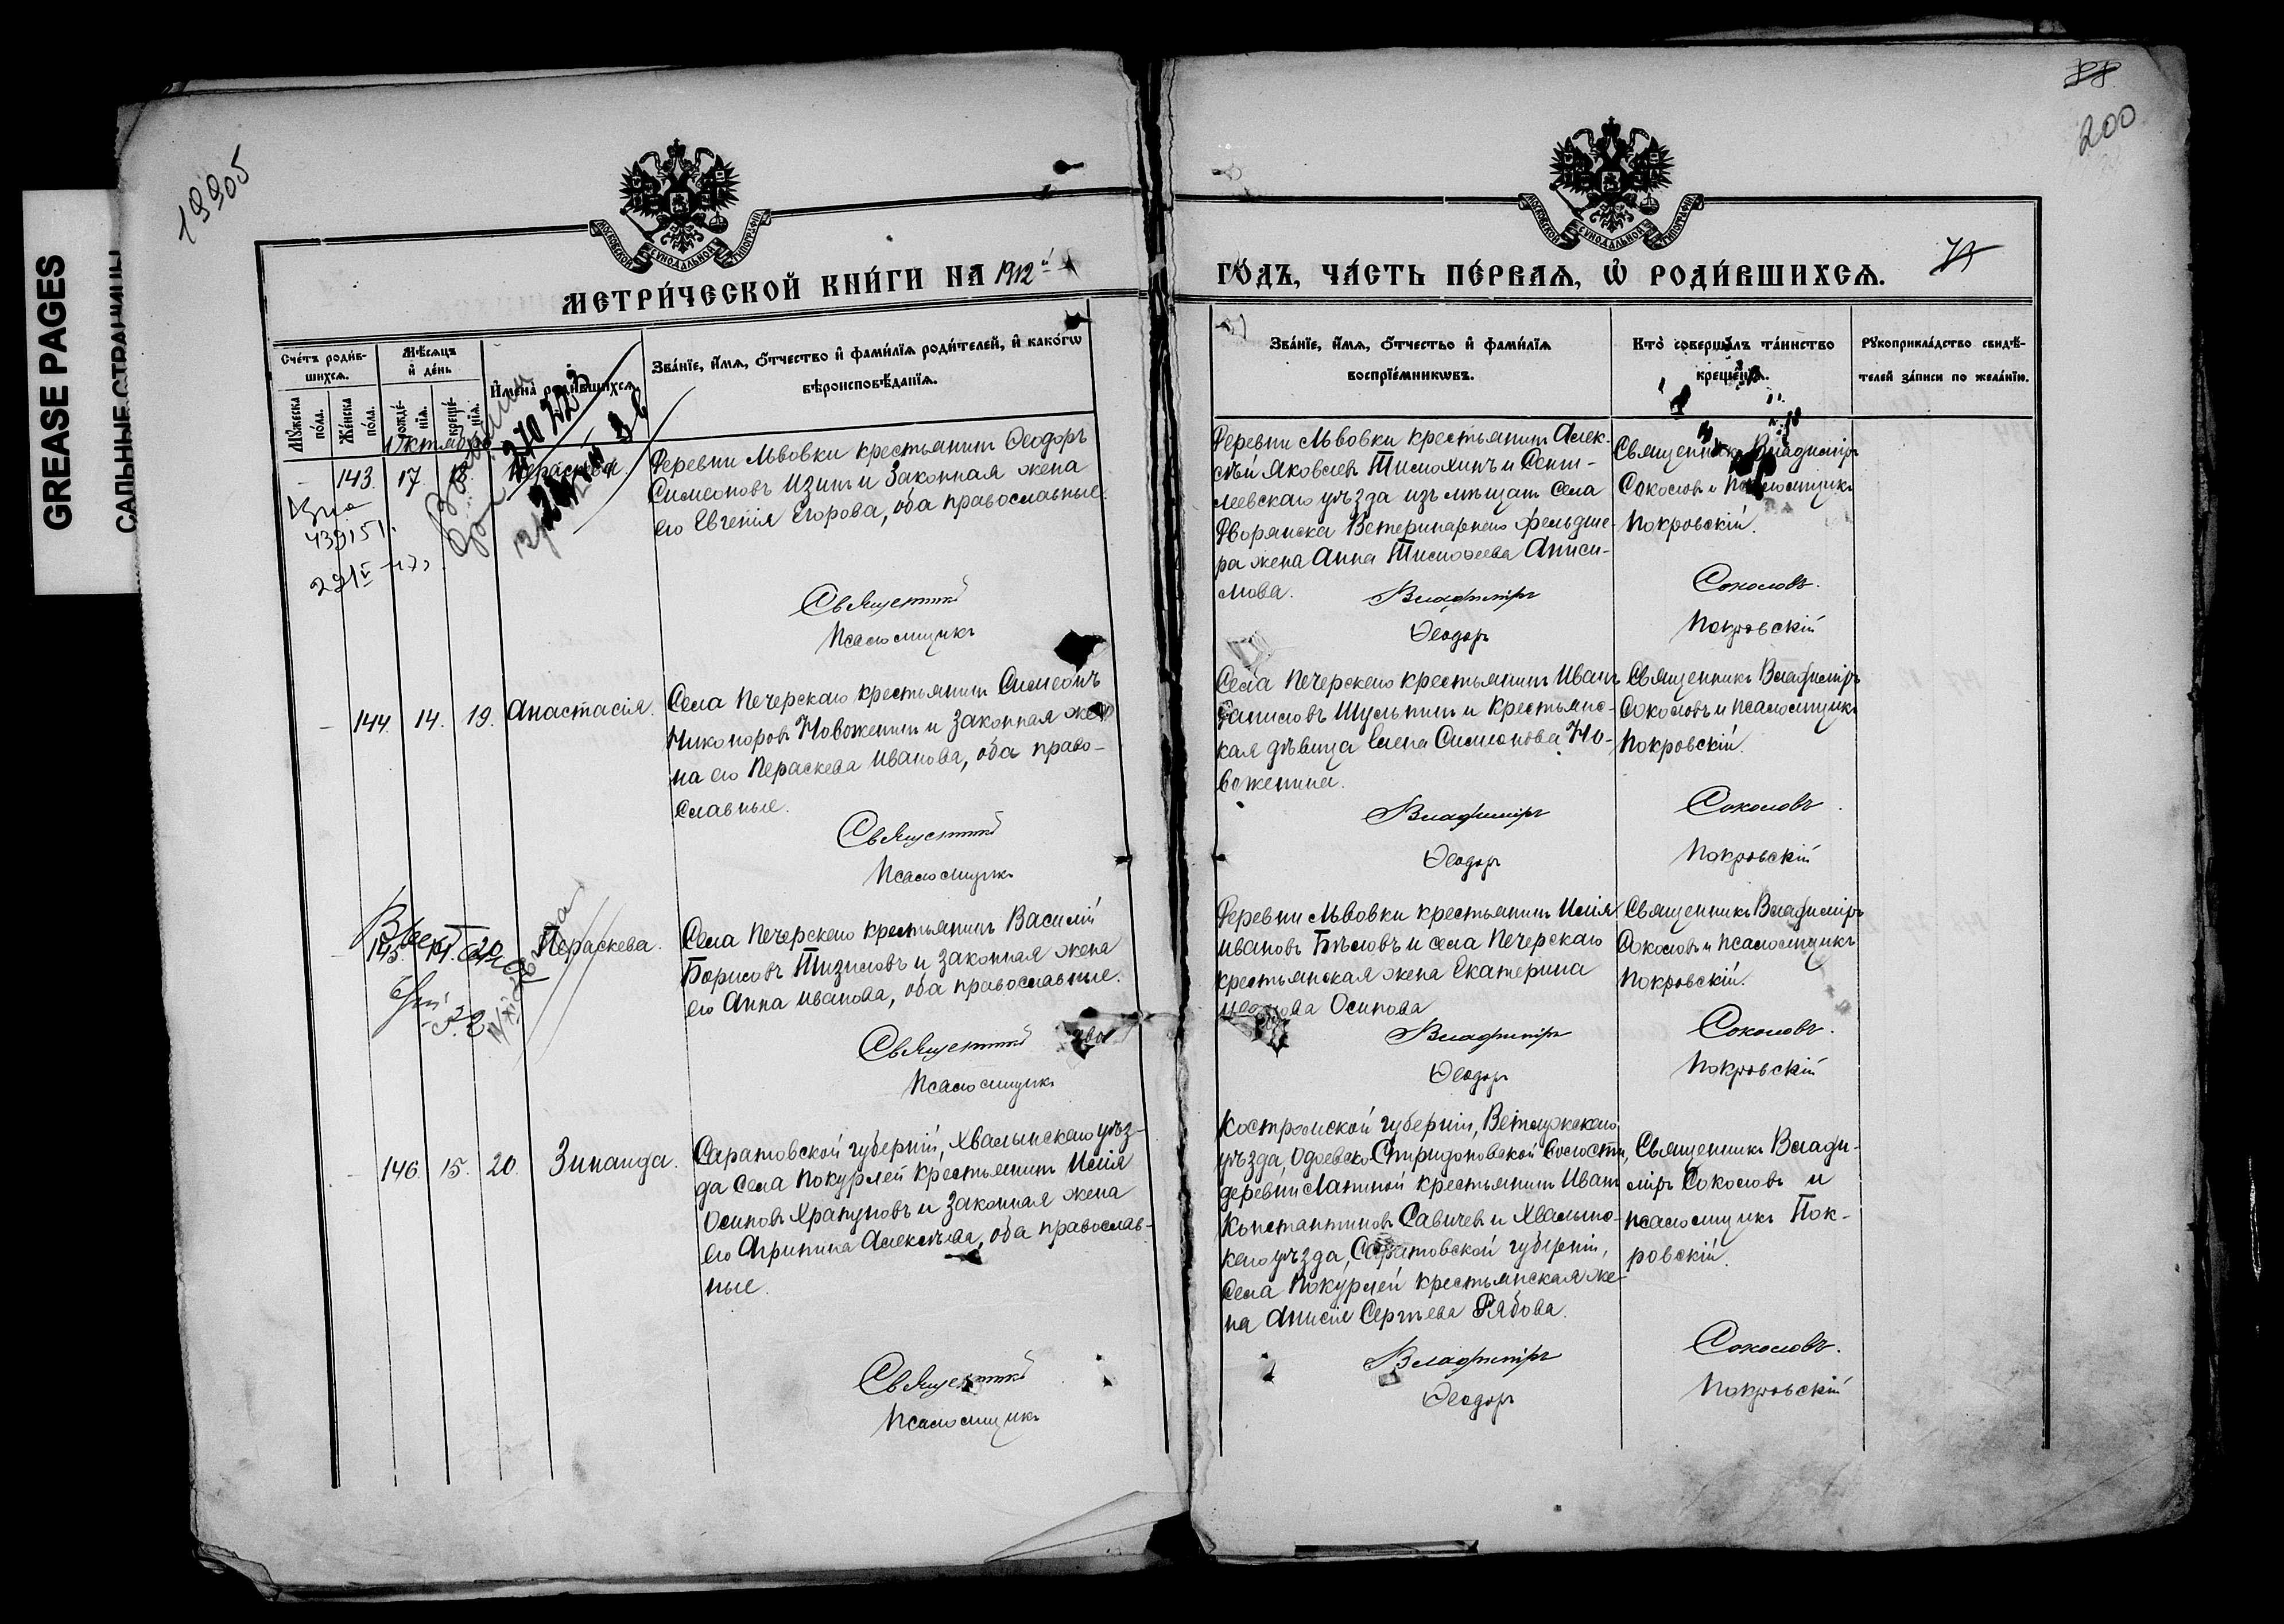 GREASE PAGES
САЛЬНЫЕ СТРАНИЦЫ
19905
200
МОСКОВСКОЙ СѴНОДАЛЬНОЙ ТИПОГРАФІИ
МОСКОВСКОЙ СѴНОДАЛЬНОЙ ТИПОГРАФІИ
МЕТРИ́ЧЕСКОЙ КНИ́ГИ НА 1912й
ГО́ДЪ, ЧА́СТЬ ПЕ́РВАѦ, Ѡ҆ РОДИ́ВШИХСѦ.
Сче́тъ роди́в-
шихсѧ.
Мѣ́сѧцъ
и҆ де́нь
Мꙋ́жеска по́ла.
Же́нска по́ла.
рожде́-
нїѧ.
креще́-
нїѧ.
И҆мена̀ роди́вшихсѧ.
Зва́нїе, и҆́мѧ, ѻ҆́тчество и҆ фами́лїѧ роди́телей, и҆ како́гѡ
вѣроисповѣ́данїѧ.
Зва́нїе, и҆́мѧ, ѻ҆́тчество и҆ фами́лїѧ
воспрїе́мникѡвъ.
Кто̀ соверша́лъ та́инство
креще́нїѧ.
Рꙋкоприкла́дство свидѣ́-
телей за́писи по жела́нїю.
Октябрь
143. 17. Параскева.
Деревни Львовки крестьянинъ Ѳеодоръ
Симеоновъ Изинъ и законная жена
его Евгенія Егорова, оба православные.
Священникъ
Псаломщикъ
Деревни Львовки крестьянинъ Алек-
сѣй Яковлевъ Тимохинъ и Сенги-
леевскаго уѣзда изъ мѣщанъ села
Дворянска Ветеринарнаго фельдше-
ра жена Анна Тимоѳеева Аниси-
мова.
Владиміръ
Ѳеодоръ
Священникъ Владиміръ
Соколовъ и Псаломщикъ
Покровскій.
Соколовъ.
Покровскій
144. 14. 19. Анастасія.
Села Печерскаго крестьянинъ Симеонъ
Никоноровъ Новоженинъ и законная же-
на его Параскева Иванова, оба право-
славные.
Священникъ
Псаломщикъ
Села Печерскаго крестьянинъ Иванъ
Даниловъ Шульпинъ и крестьянс-
кая дѣвица Елена Симеонова Но-
воженина.
Владиміръ
Ѳеодоръ
Священникъ Владиміръ
Соколовъ и псаломщикъ
Покровскій.
Соколовъ.
Покровскій
145. 20. Параскева.
Села Печерскаго крестьянинъ Василій
Борисовъ Тизиловъ и законная жена
его Анна Иванова, оба православные.
Священникъ
Псаломщикъ
Деревни Львовки крестьянинъ Илія
Ивановъ Бѣловъ и села Печерскаго
крестьянская жена Екатерина
Осипова
Владиміръ
Ѳеодоръ
Священникъ Владиміръ
Соколовъ и Псаломщикъ
Покровскій.
Соколовъ.
Покровскій
146. 15. 20. Зинаида.
Саратовской губерніи, Хвалынскаго уѣз-
да села Покурлей крестьянинъ Илія
Осиповъ Храпуновъ и законная жена
его Агрипина Алексѣева, оба православ-
ные.
Священникъ
Псаломщикъ
Костромской губерніи, Ветлужскаго
уѣзда, Одоевско-Спиридоновской волости,
деревни Лапиной крестьянинъ Иванъ
Константиновъ Савичевъ и Хвалынс-
каго уѣзда, Саратовской губерніи,
села Покурлей крестьянская же-
на Анисія Сергѣева Рябова.
Владиміръ
Ѳеодоръ
Священникъ Влади-
міръ Соколовъ и
псаломщикъ Пок-
ровскій.
Соколовъ.
Покровскій